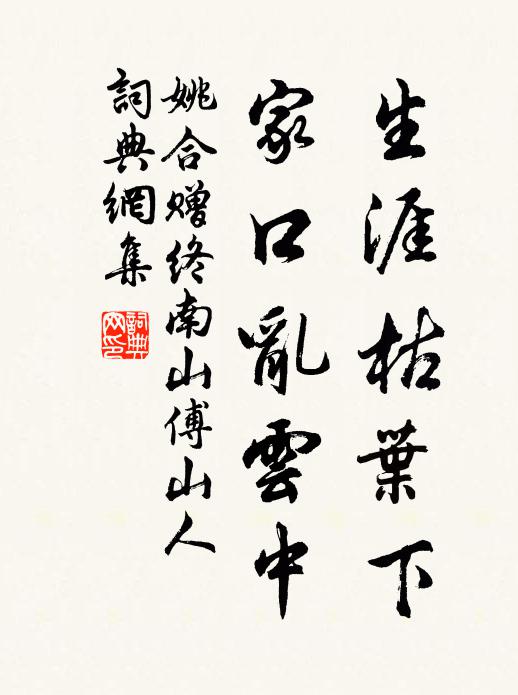 生涯枯葉下
家口亂雲中
姚合贈終南山傅山人
詞典網集
詞典網印